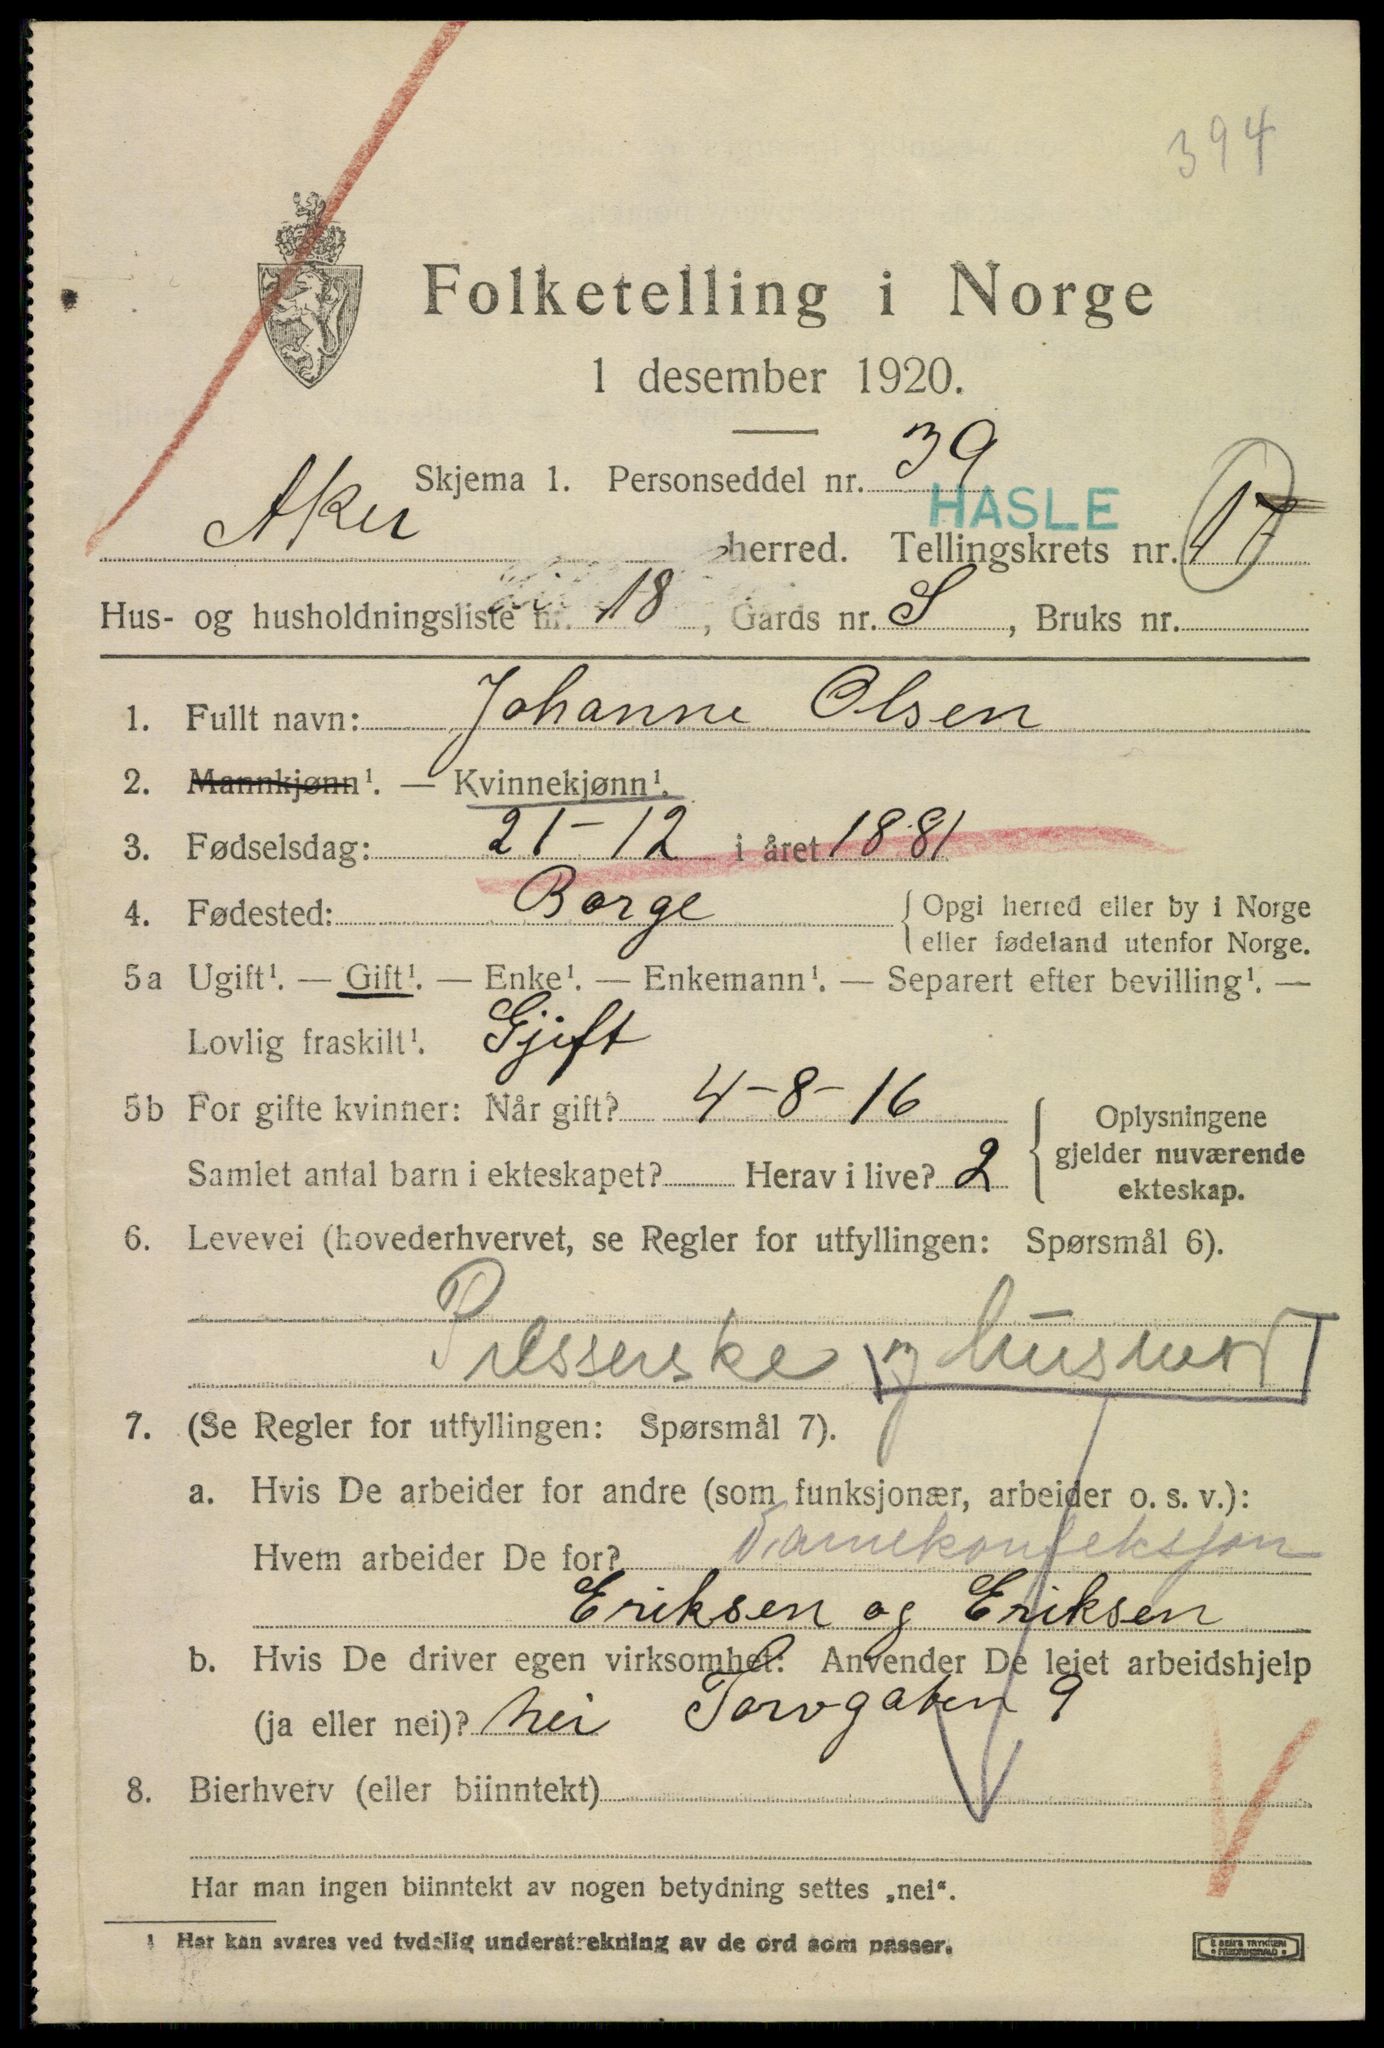 394
Folketelling i Norge
1 desember 1920.
Skjema 1. Personseddel nr. 39
HASLE
Aker herred. Tellingskrets nr. 17
Hus- og husholdningsliste nr. 18, Gards nr. S, Bruks nr.
1. Fullt navn: Johanne Olsen
2. Mannkjønn¹. — Kvinnekjønn¹.
3. Fødselsdag: 21-12 i året 1881
4. Fødested: Borge { Opgi herred eller by i Norge
eller fødeland utenfor Norge.
5a Ugift¹. — Gift¹. — Enke¹. — Enkemann¹. — Separert efter bevilling¹. —
Lovlig fraskilt¹. Gjift
5b For gifte kvinner: Når gift? 4-8-16 { Oplysningene
gjelder nuværende
Samlet antal barn i ekteskapet? Herav i live? 2 ekteskap.
6. Levevei (hovederhvervet, se Regler for utfyllingen: Spørsmål 6).
Presserske og husmor
7. (Se Regler for utfyllingen: Spørsmål 7).
a. Hvis De arbeider for andre (som funksjonær, arbeider o. s. v.):
Hvem arbeider De for? Damekonfeksjon
Eriksen og Eriksen
b. Hvis De driver egen virksomhet: Anvender De leiet arbeidshjelp
(ja eller nei)? nei Torvgaten 9
8. Bierhverv (eller biinntekt)
Har man ingen biinntekt av nogen betydning settes „nei“.
¹ Her kan svares ved tydelig understrekning av de ord som passer.